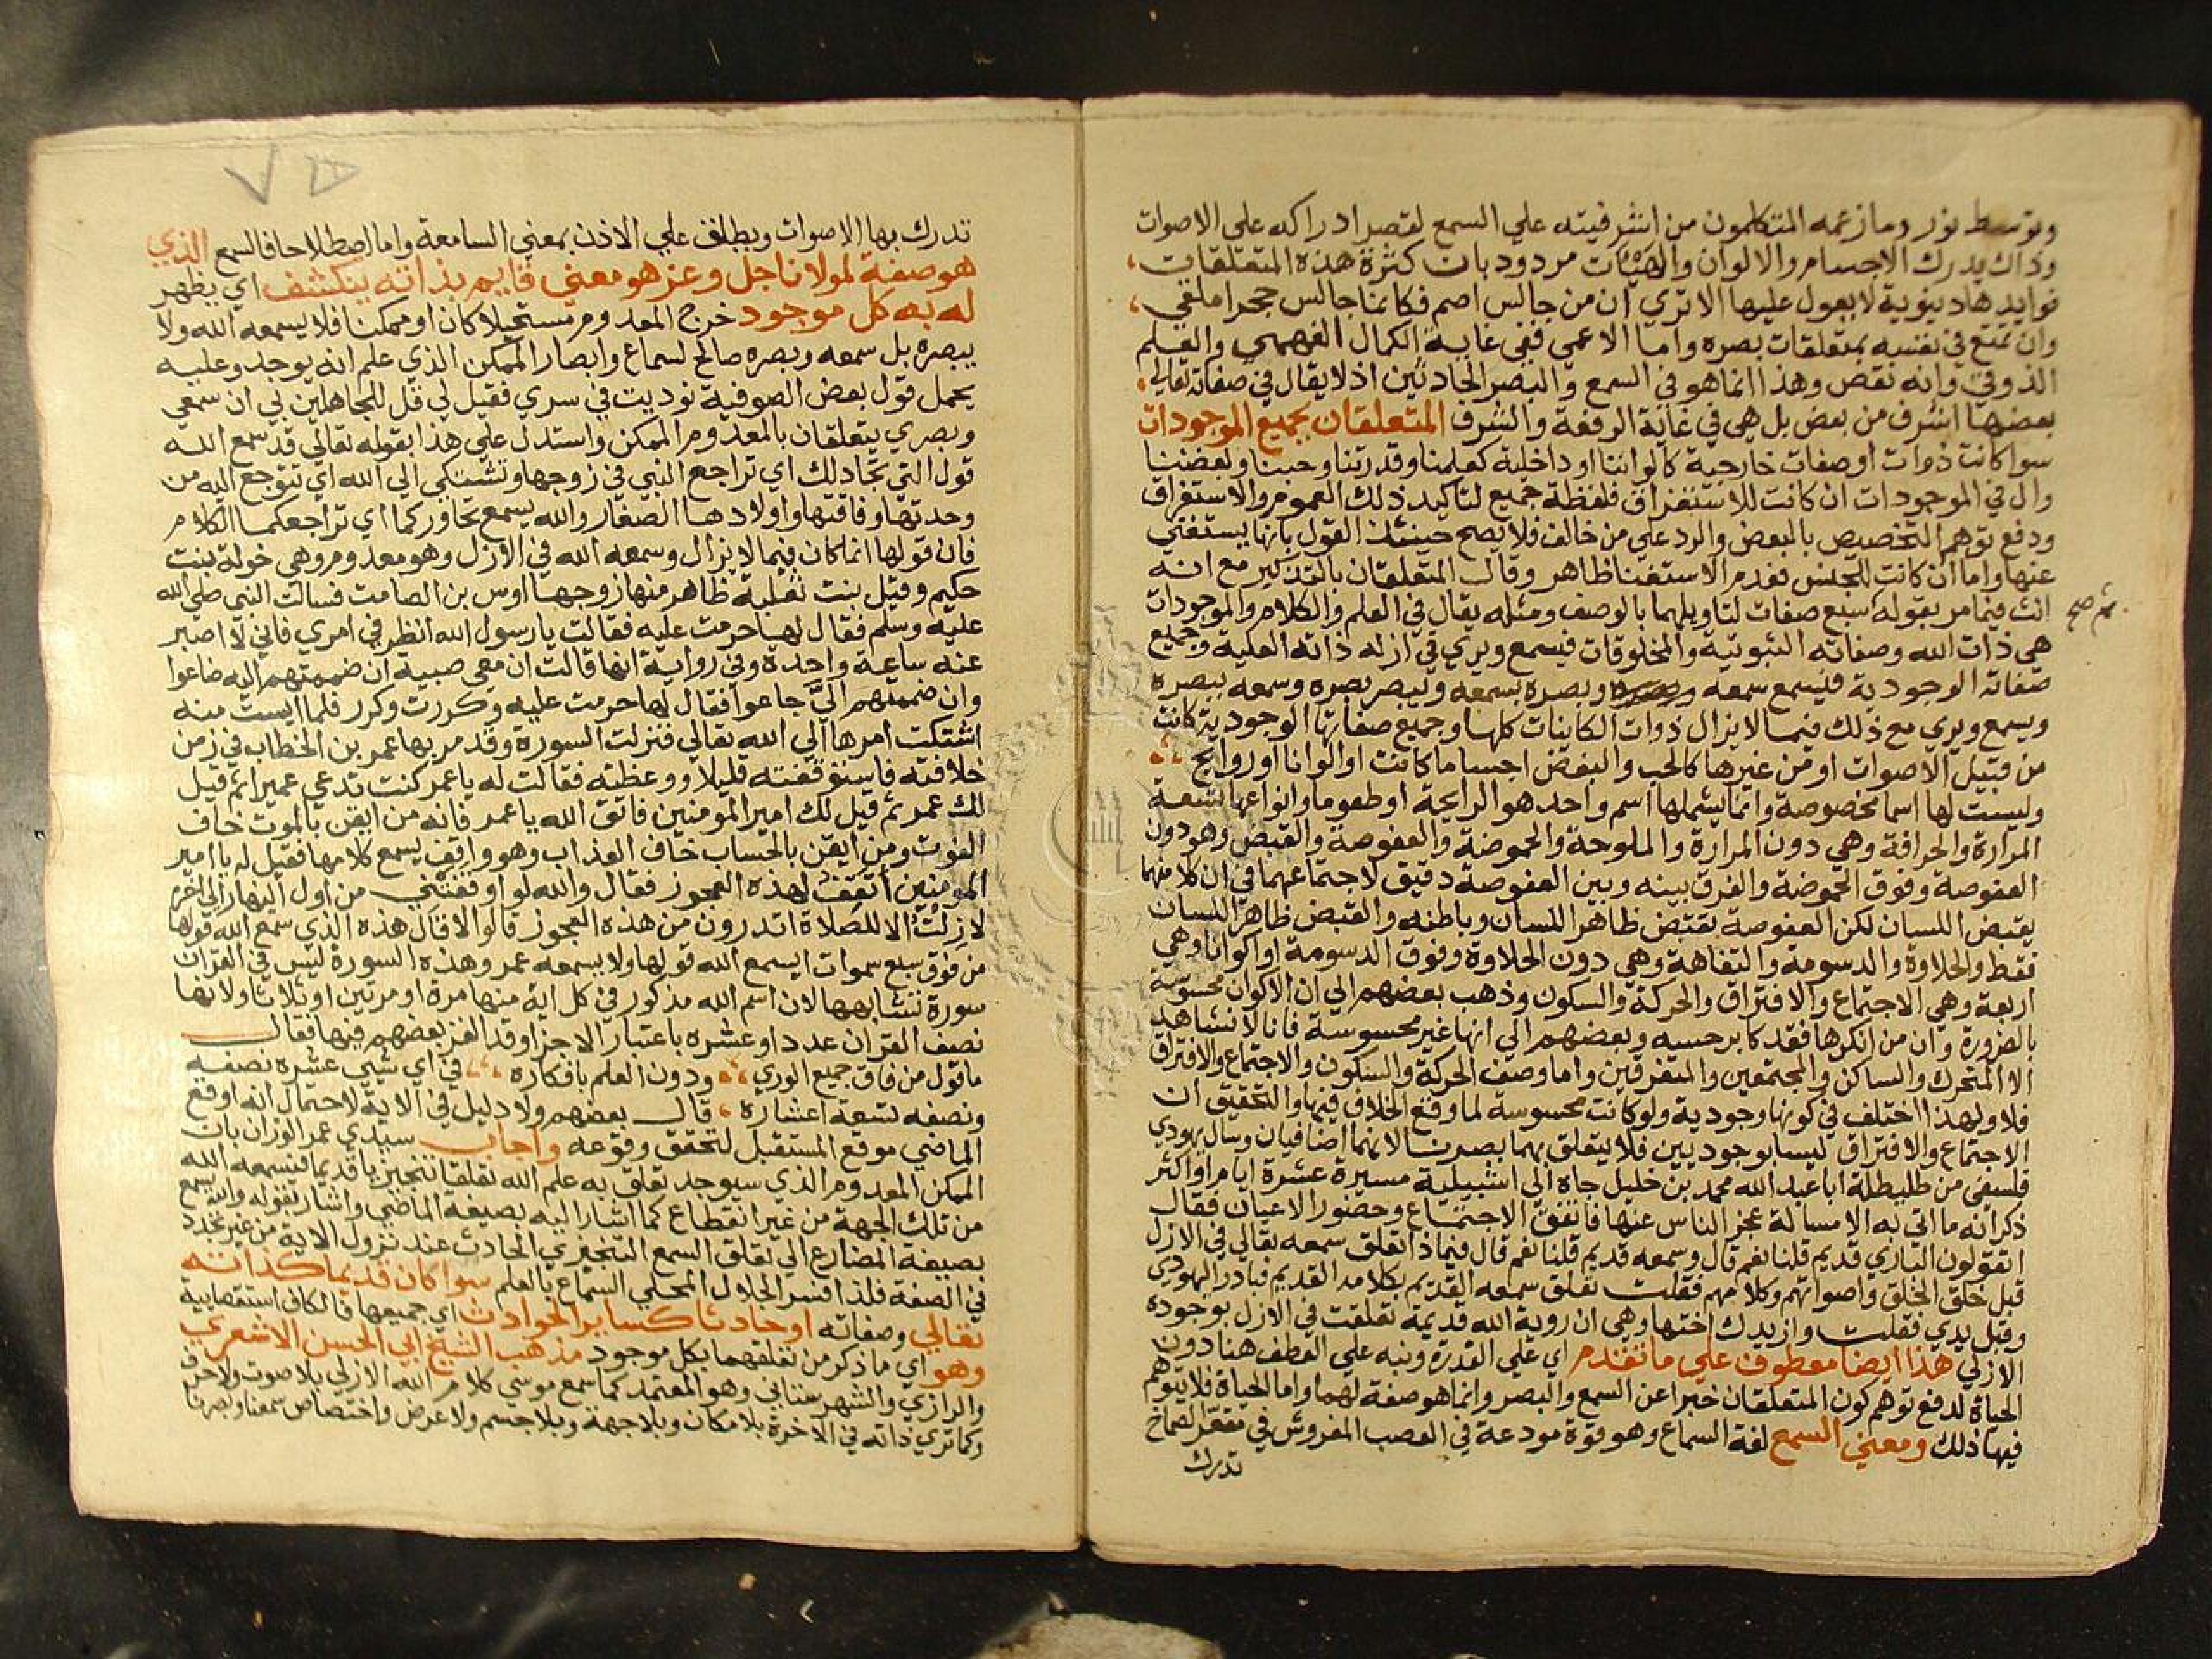 وتوسط نور وما زعمه المتكلمون من اشرفيته علي السمع لقصر ادراكه علي الاصوات
وذاك يدرك الاجسام والالوان والهيئات مردود بان كثرة هذه المتعلقات
فوايدها دنيوية لا يعول عليها الا تري ان من جالس اصم فكانما جالس حجرا ملقي
وان تمتع في نفسه بمتعلقات بصره واما الاعمي ففي غاية الكمال الفهمي والعلم
الذوقي وانه نقص وهذا انما هو في السمع والبصر الحادثين اذ لا يقال في صفاته تعالي
بعضها اشرف من بعض بل هي في غاية الرفعة والشرف المتعلقان بجميع الموجودات
سوا كانت ذوات او صفات خارجية كالواننا او داخلية كعلمنا وقدرتنا وحبنا وبغضنا
وال في الموجودات ان كانت للاستغراق فلفظة جميع لتاكيد ذلك العموم والاستغراق
ودفع توهم التخصيص بالبعض والرد علي من خالف فلا يصح حينئذ القول بانها يستغني
عنها واما ان كانت للجنس فعدم الاستغنا ظاهر وقال المتعلقان بالتذكير مع انه
انث فيما مر بقوله سبع صفات لتاويلهما بالوصف ومثله يقال في العلم والكلام والموجودات
هي ذات الله وصفاته الثبوتية والمخلوقات فيسمع ويري في ازله ذاته العلية وجميع
صفاته الوجودية فيسمع سمعه وبصره بسمعه ويبصر بصره وسمعه ببصره
ويسمع ويري مع ذلك فيما لا يزال ذوات الكاينات كلها وجميع صفاتها الوجودية كانت
من قبيل الاصوات او من غيرها كالحب والبغض اجساما كانت او الوانا او روايح
وليست لها اسما مخصوصة وانما يشملها اسم واحد هو الرايحة او طعوما وانواعها تسعة
المرارة والحرافة وهي دون المرارة والملوحة والحموضة والعفوصة والقبض وهو دون
العفوصة وفوق الحموضة والفرق بينه وبين العفوصة دقيق لاجتماعهما في ان كلا منهما
يقبض اللسان لكن العفوصة تقبض ظاهر اللسان وباطنه والقبض ظاهر اللسان
فقط والحلاوة والدسومة والتفاهة وهي دون الحلاوة وفوق الدسومة او اكوانا وهي
اربعة وهي الاجتماع والافتراق والحركة والسكون وذهب بعضهم الي ان الاكوان محسوسة
بالضرورة وان من انكرها فقد كابر حسه وبعضهم الي انها غير محسوسة فانا لا نشاهد
الا المتحرك والساكن والمجتمعين والمتفرقين واما وصف الحركة والسكون والاجتماع والافتراق
فلا ولهذا اختلف في كونها وجودية ولو كانت محسوسة لما وقع الخلاف فيها والتحقيق ان
الاجتماع والافتراق ليسا بوجوديين فلا يتعلق بهما بصرنا لانهما اضافيان وسال يهودي
فلسفي من طليطلة ابا عبد الله محمد بن خليل جاه الي اشبيلية مسيرة عشرة ايام او اكثر
ذكر انه ما اتي به الا مسالة عجز الناس عنها فاتفق الاجتماع وحضور الاعيان فقال
اتقولون الباري قديم قلنا نعم قال وسمعه قديم قلنا نعم قال فبماذا تعلق سمعه تعالي في الازل
قبل خلق الخلق واصواتهم وكلامهم فقلت تعلق سمعه القديم بكلامه القديم فبادر اليهودي
وقبل يدي فقلت وازيدك اختها وهي ان روية الله قديمة تعلقت في الازل بوجوده
الازلي هذا ايضا معطوف علي ما تقدم اي علي القدرة ونبه علي العطف هنا دون
الحياة لدفع توهم كون المتعلقان خبرا عن السمع والبصر وانما هو صفة لهما واما الحياة فلا يتوهم
فيها ذلك ومعني السمع لغة السماع وهو قوة مودعة في العصب المفروش في مقعر الصماخ
تدرك
تدرك بها الاصوات ويطلق علي الاذن بمعني السامعة واما اصطلاحا فالسمع الذي
هو صفة لمولانا جل وعز هو معني قايم بذاته ينكشف اي يظهر
له به كل موجود خرج المعدوم مستحيلا كان او ممكنا فلا يسمعه الله ولا
يبصره بل سمعه وبصره صالح لسماع وابصار الممكن الذي علم انه يوجد وعليه
يحمل قول بعض الصوفية نوديت في سري فقيل لي قل للجاهلين لي ان سمعي
وبصري يتعلقان بالمعدوم الممكن واستدل علي هذا بقوله تعالي قد سمع الله
قول التي تجادلك اي تراجع النبي في زوجها وتشتكي الي الله اي تتوجع اليه من
وحدتها وفاقتها واولادها الصغار والله يسمع تحاوركما اي تراجعكما الكلام
فان قولها انما كان فيما لا يزال وسمعه الله في الازل وهو معدوم وهي خولة بنت
حكيم وقيل بنت ثعلبة ظاهر منها زوجها اوس بن الصامت فسالت النبي صلي الله
عليه وسلم فقال لها حرمت عليه فقالت يا رسول الله انظر في امري فاني لا اصبر
عنه ساعة واحدة وفي رواية انها قالت ان معي صبية ان ضممتهم اليه ضاعوا
وان ضممتهم الي جاعوا فقال لها حرمت عليه وكررت وكرر فلما ايست منه
اشتكت امرها الي الله تعالي فنزلت السورة وقد مر بها عمر بن الخطاب في زمن
خلافته فاستوقفته قليلا ووعظته فقالت له يا عمر كنت تدعي عميرا ثم قيل
لك عمر ثم قيل لك امير المومنين فاتق الله يا عمر فانه من ايقن بالموت خاف
الفوت ومن ايقن بالحساب خاف العذاب وهو واقف يسمع كلامها فقيل له يا امير
المومنين اتقف لهذه العجوز فقال والله لو اوقفتني من اول النهار الي اخره
لا زلت الا للصلاة اتدرون من هذه العجوز قالوا لا قال هذه الذي سمع الله قولها
من فوق سبع سموات ايسمع الله قولها ولا يسمعه عمر وهذه السورة ليس في القران
سورة تشابهها لان اسم الله مذكور في كل اية منها مرة او مرتين او ثلاثا ولانها
نصف القران عددا وعشره باعتبار الاجزا وقد الغز بعضهم فيها فقال
ما قول من فاق جميع الوري ودون العلم بافكاره في اي شيي عشره نصفه
ونصفه تسعة اعشاره قال بعضهم ولا دليل في الاية لاحتمال انه اوقع
الماضي موقع المستقبل لتحقق وقوعه واجاب سيدي عمر الوزان بان
الممكن المعدوم الذي سيوجد تعلق به علم الله تعلقا تنجيزيا قديما فيسمعه الله
من تلك الجهة من غير انقطاع كما اشار اليه بصيغة الماضي واشار بقوله والله يسمع
بصيغة المضارع الي تعلق السمع التنجيزي الحادث عند نزول الاية من غير تجدد
في الصفة فلذا فسر الجلال المحلي السماع بالعلم سوا كان قديما كذاته
تعالي وصفاته او حادثا كساير الحوادث اي جميعها فالكاف استقصايية
وهو اي ما ذكر من تعلقهما بكل موجود مذهب الشيخ ابي الحسن الاشعري
والرازي والشهرستاني وهو المعتمد كما سمع موسي كلام الله الازلي بلا صوت ولا حرف
وكما تري ذاته في الاخرة بلا مكان وبلا جهة وبلا جسم ولا عرض واختصاص سمعنا وبصرنا